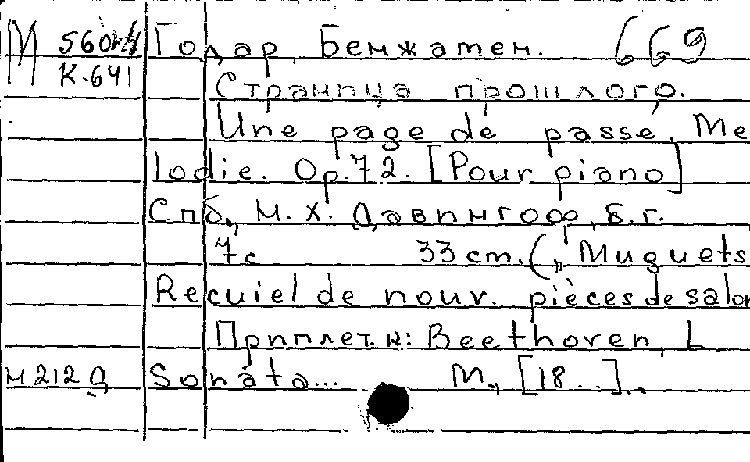 М 560 Годар, Бенжамен. 669
К.641 Страница прошлого.
Une page de passé. Me
lodie. Op.72. [Pour piano]
Спб., М. Х. Давингоф, б.г.
7с 33 cm. („Muguets
Recuiel de nouv. pièces de salon
Приплет. к: Beethoven, L
М 212 Д Sonata... М., [18..]..